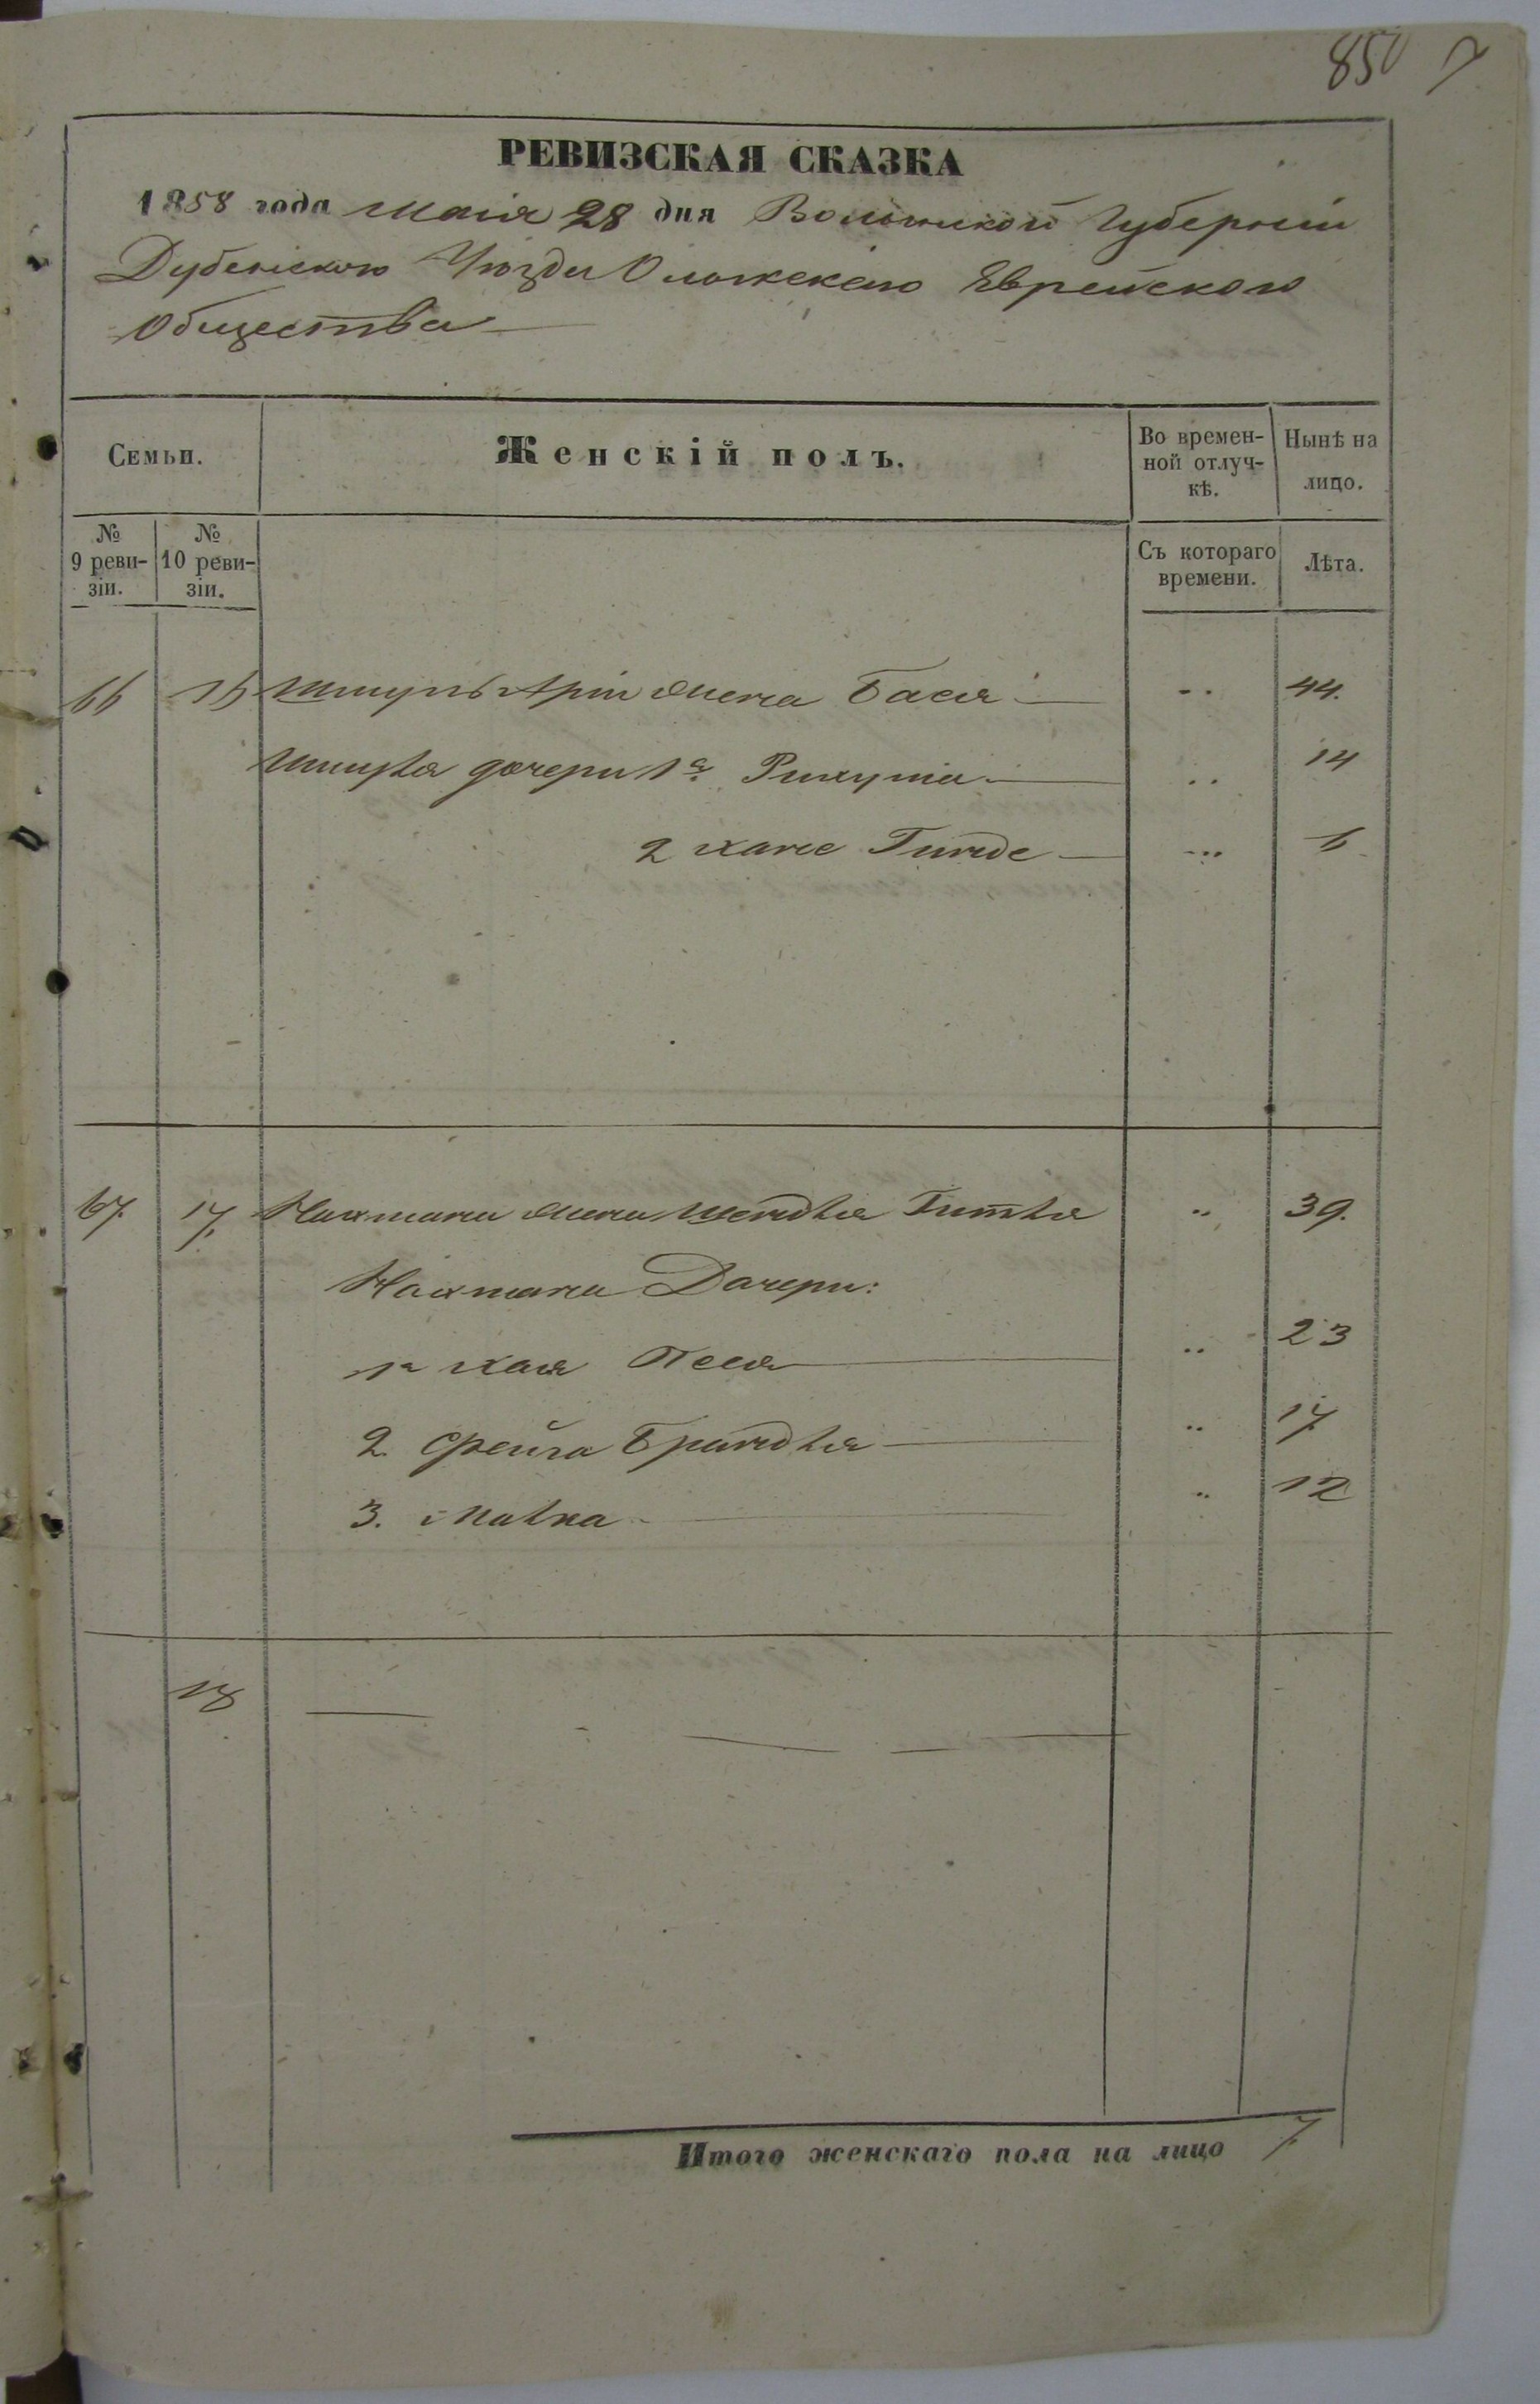 850 7
РЕВИЗСКАЯ СКАЗКА
1858 года маія 28 дня Волынской Губерніи
Дубенскаго Уѣзда Еврейскаго
Общества
Семьи.
Женскій полъ.
Во времен-
ной отлуч-
кѣ.
Нынѣ на
лицо.
№
9 реви-
зіи.
№
10 реви-
зіи.
Съ котораго
времени.
Лѣта.
66 16 Шмуль Арія жена Бася 44.
Шмуля дочери 1я 14
2 Хане 6
67. 17. Нахмана жена Шейндля Гитля 39.
Нахмана Дочери:
1я Хая Песя 23
2. Фейга Брандля 17
3. Малка 12
18
Итого женскаго пола на лицо 7.